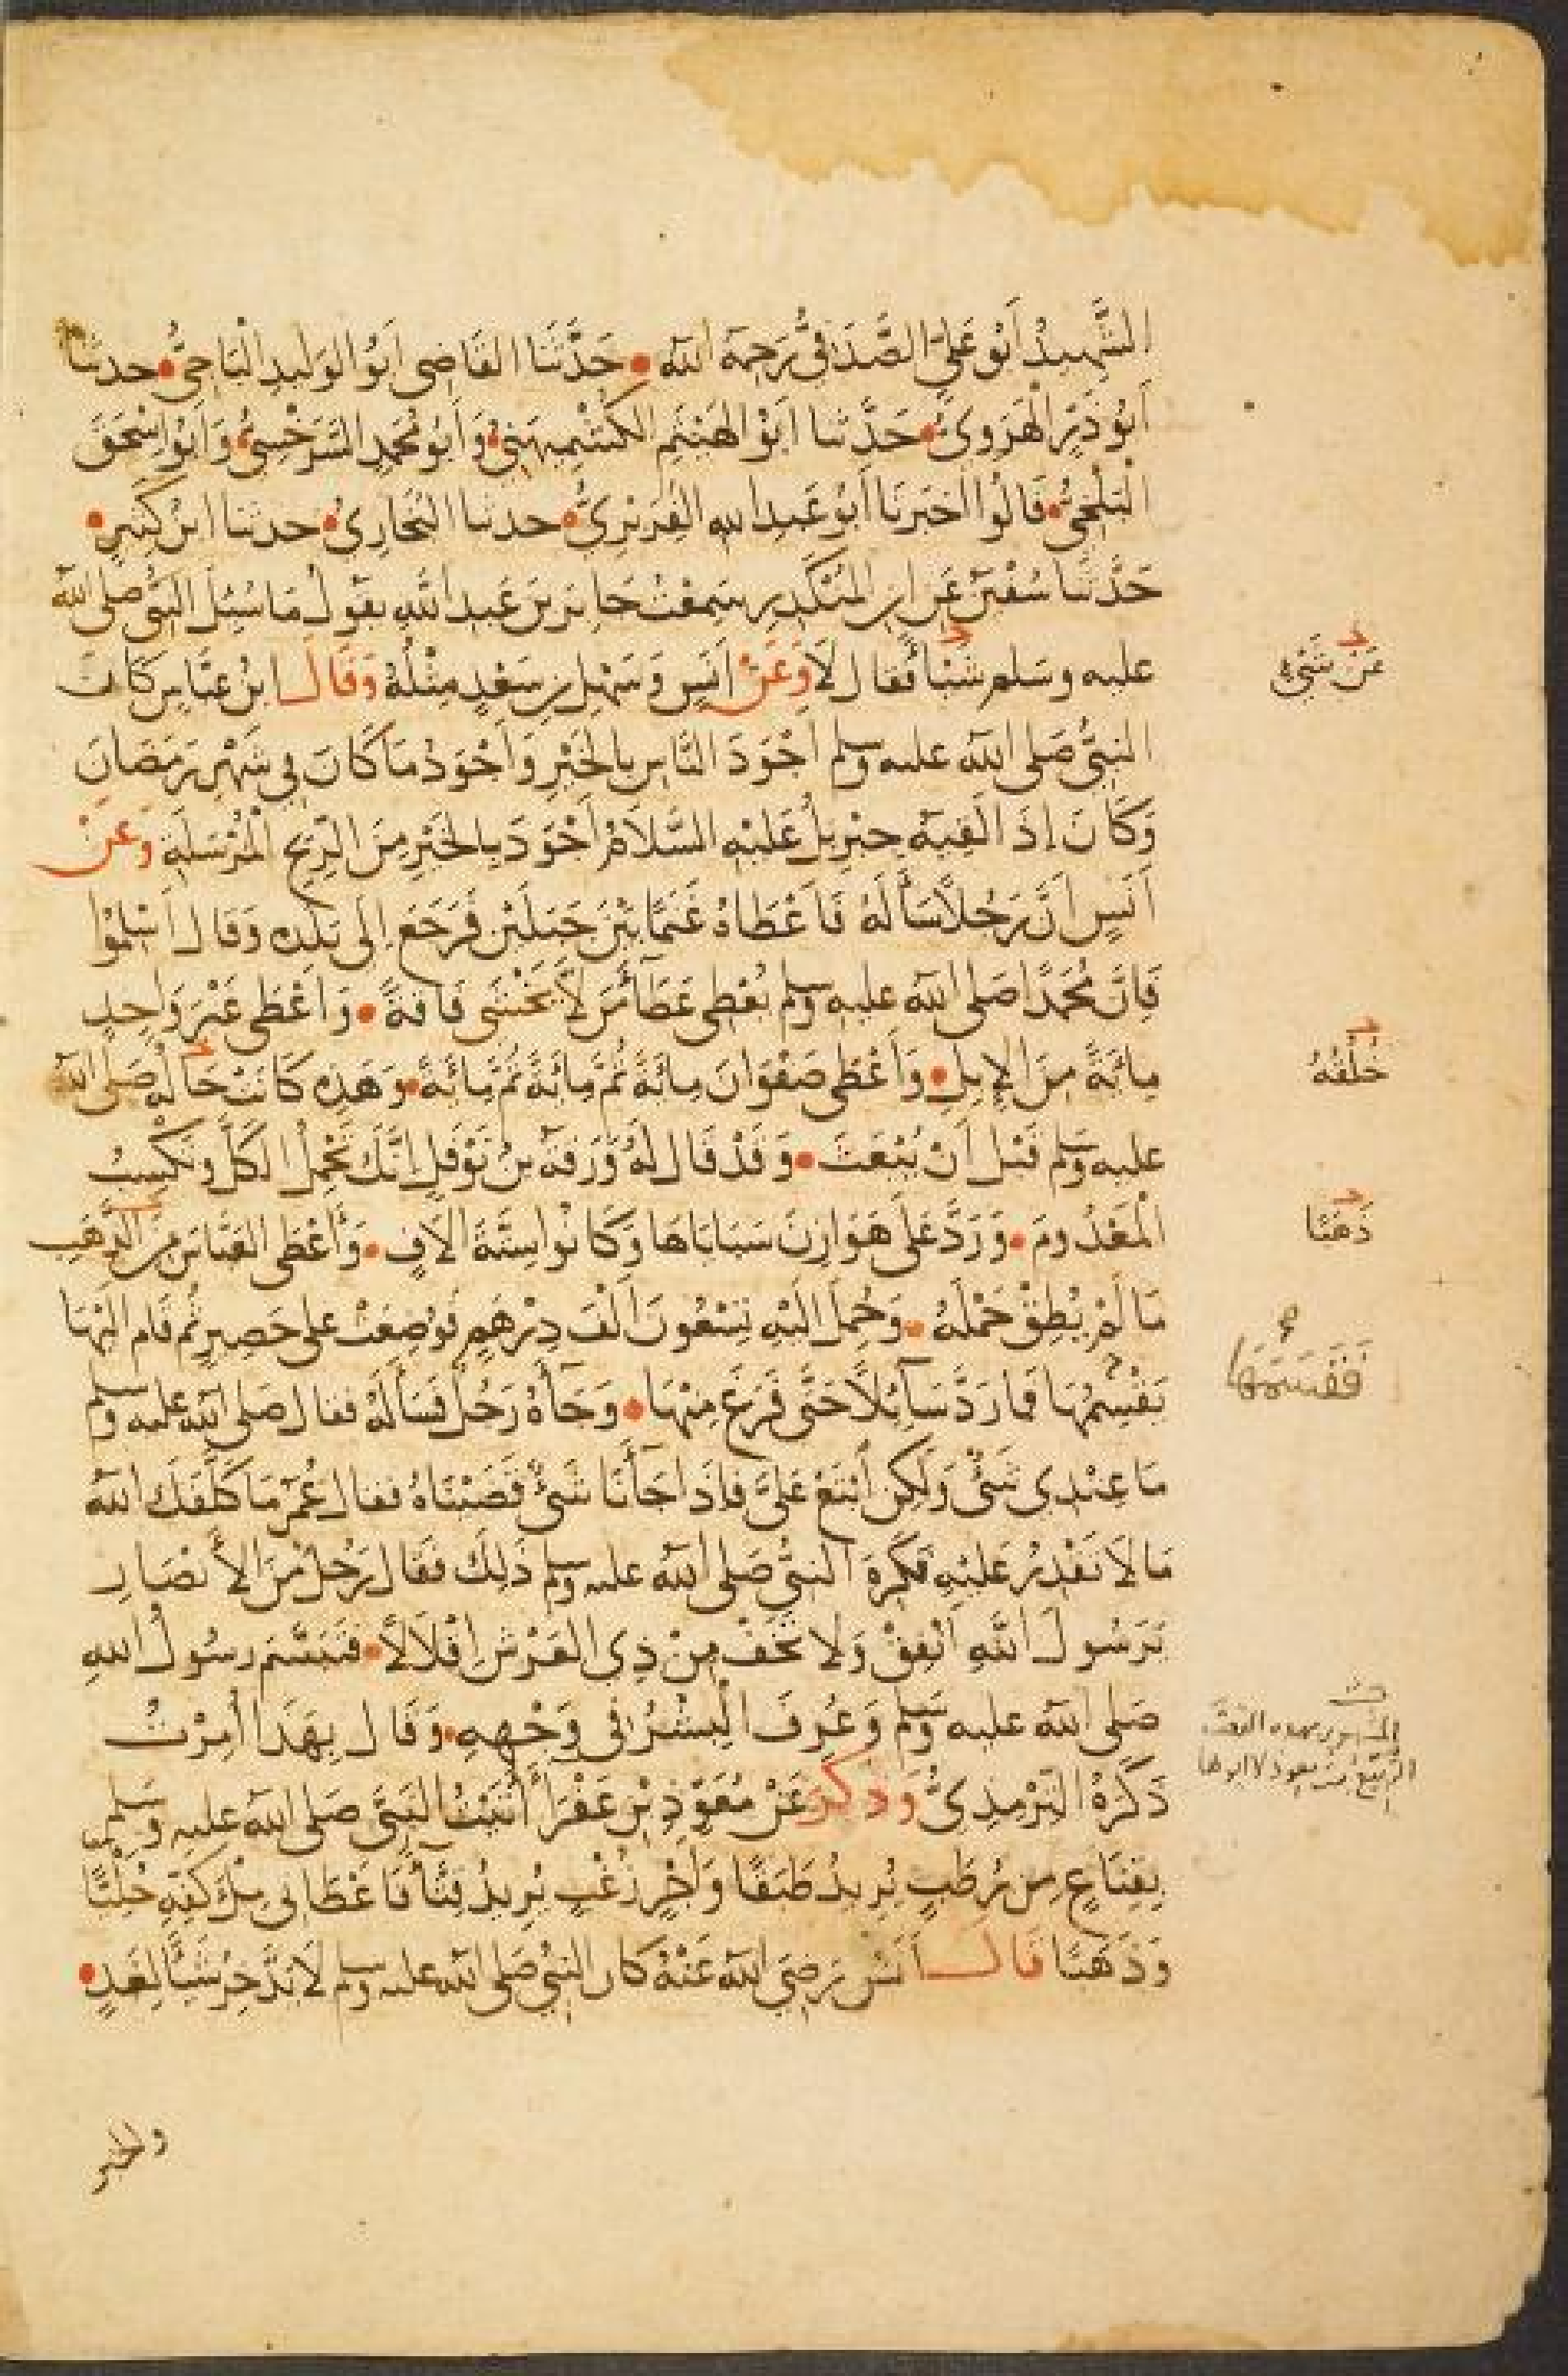 الشَّهِيدُ أَبُو عَلِيٍّ الصَّدَفِيُّ رَحِمَهُ اللَّه • حَدَّثَنَا القَاضِي أَبُو الوَلِيدِ البَاجِيُّ • حدثنا
أَبُو ذَرٍّ الْهَرَوِيُّ • حَدَّثنا أَبُو الهَيْثَمِ الكُشْمِيهَنِيُّ • وَأَبُو مُحَمَّدٍ السَّرَخْسِيُّ • وَأَبُو إِسْحَقَ
الْبَلْخِيُّ • قَالُوا أَخبَرنَا أَبُو عَبدِ الله الفِرَبْرِيُّ • حدثنا البُخَارِيُّ • حدثنا ابنُ كَثِيرٍ •
حَدَّثَنَا سُفْيٰنُ عَنِ ابنِ المُنْكَدِرِ سَمِعْتُ جَابِرَ بنَ عَبدِ اللَّهِ يَقُولُ مَا سُئِلَ النَّبِيُّ صلى الله
عليه وسَلم شَيْئًا فَقَال لَا وَعَنْ أَنَسٍ وَسَهْلِ بنِ سَعْدٍ مِثْلُهُ وَقَالَ ابنُ عبَّاسٍ كَانَ
عَنْ شَيْءٍ
النبيُّ صَلى الله عليه وسلم أَجْوَدَ النَّاسِ بِالخَيْرِ وَأَجْوَدُ مَا كَانَ فِي شَهْرِ رَمَضَانَ
وَكَانَ إِذَا لَقِيَهُ جِبْرِيلُ عَلَيْهِ السَّلَامُ أَجْوَدَ بِالخَيْرِ مِنَ الرِّيحِ الْمُرْسَلَةِ وَعَنْ
أَنَسٍ أَنَّ رَجُلًا سَأَلَهُ فَأَعْطَاهُ غَنَمًا بَيْنَ جَبَلَيْنِ فَرَجَعَ إِلَى بَلَدِهِ وَقَالَ أَسْلِمُوا
فَإِنَّ مُحَمَّدًا صَلى الله عليه وسلم يُعْطِي عَطَآءَ مَن لَا يَخْشَى فَاقَةً • وَأَعْطَى غَيْرَ وَاحِدٍ
مِائَةً مِنَ الإِبِلِ • وَأَعْطَى صَفْوَانَ مِائَةً ثُمَّ مِائَةً ثُمَّ مِائَةً • وَهَذِهِ كَانَتْ حَالُهُ صَلَّى الله
خُلُقُهُ
عليه وسلم قَبْلَ أَنْ يُبْعَثَ • وَقَدْ قَالَ لَهُ وَرَقَةُ بنُ نَوْفَلٍ إِنَّكَ تَحْمِلُ الكَلَّ وَتَكْسِبُ
الْمَعْدُومَ • وَرَدَّ عَلَى هَوَازِنَ سَبَايَاهَا وَكَانُوا سِتَّةَ آلافٍ • وَأَعْطَى العَبَّاسَ مِنَ الذَّهَبِ
ذَهَبًا
مَا لَمْ يُطِقْ حَمْلَهُ • وَحُمِلَ إِلَيْهِ تِسْعُونَ أَلْفَ دِرْهَمٍ فَوُضِعَتْ على حَصِيرٍ ثُم قَام إِلَيْهَا
يَقْسِمُهَا فَمَا رَدَّ سَآئِلًا حَتَّى فَرَغَ مِنْهَا • وَجَآءَهُ رَجُلٌ فَسَأَلَهُ فقال صَلى الله عليه وسلم
فَقَسَمَهَا
مَا عِنْدِي شَيْءٌ وَلَكِنِ ابْتَعْ عَلَيَّ فَإِذَا جَآءَنَا شَيْءٌ قَضَيْنَاهُ فقال عُمَر مَا كَلَّفَكَ الله
مَا لَا تَقْدِرُ عَلَيْهِ فَكَرِهَ النبيُّ صَلى الله عليه وسلم ذَلِكَ فَقَال رَجُلٌ مِنَ الأَنْصَارِ
يَرَسُولَ اللَّهِ أَنْفِقْ وَلَا تَخَفْ مِنْ ذِي العَرْشِ إِقْلَالًا • فَتَبَسَّمَ رسُولُ اللهِ
صَلى الله عليه وسلم وَعُرِفَ الْبِشْرُ فِي وَجْهِهِ • وَقَالَ بِهَذَا أُمِرْتُ
المشهور بهذه القصة
الربيع بنت معوذ لا ابوها
ذَكَرَهُ التِّرْمِذِيُّ وَذُكِرَ عَنْ مُعَوِّذِ بْنِ عَفْرَآءَ أَتَيْتُ النَّبِيَّ صَلى الله عليه وسلم
بِقِنَاعٍ مِن رُطَبٍ يُرِيدُ طَبَقًا وَأَجْرٍ زُغْبٍ يُرِيدُ قِثَّآءً فَأَعْطَانِي مِلْءَ كَفِّهِ حُلِيًّا
وَذَهَبًا قَالَ أَنَسٌ رَضِيَ الله عَنْهُ كَانَ النبيُّ صَلى الله عليه وسلم لَا يَدَّخِرُ شَيْئًا لِغَدٍ •
والخبر